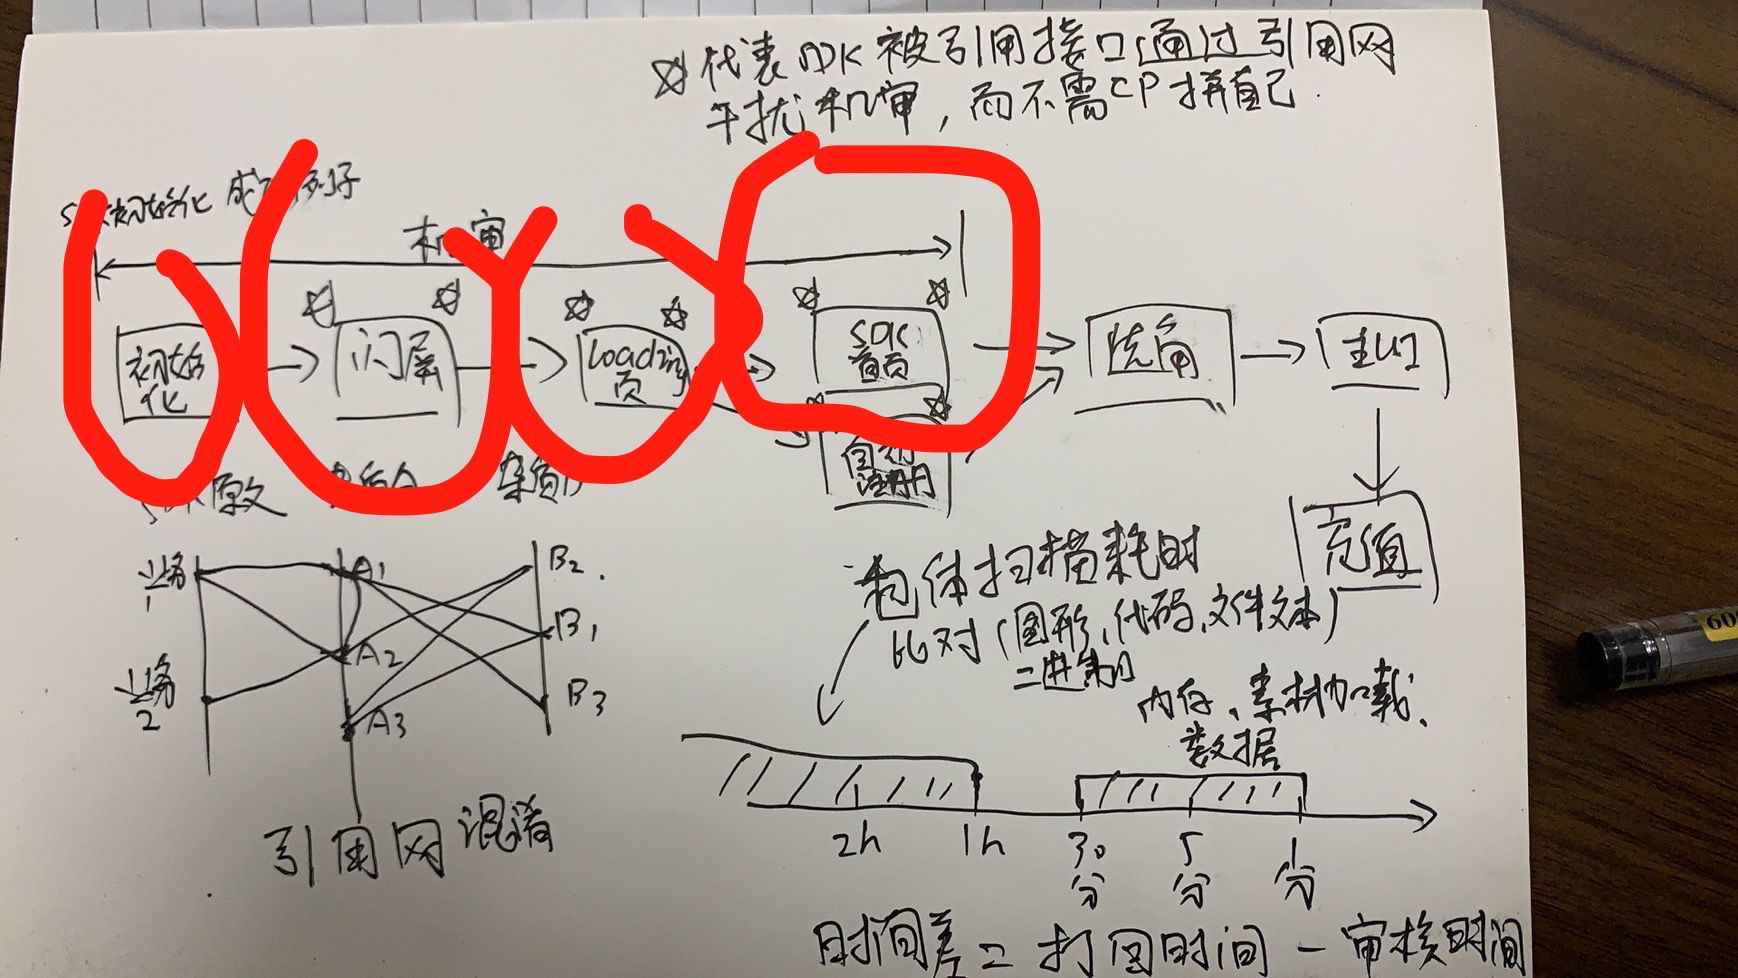 代表SDK被引用接口,通过引用网
干扰机审,而不需CP拼自己.
初始化
机审
初始
化
闪屏
Loading
页
SDK
首页
选角
主UI
自动
注册
充值
原文
杂质
业务
1
业务
2
A1
A2
A3
B2
B1
B3
引用网混淆
包体扫描耗时
比对(图形、代码、文件文本)
二进制
内存、素材加载、
数据
2h
1h
30
分
5
分
1
分
时间差=打回时间-审核时间